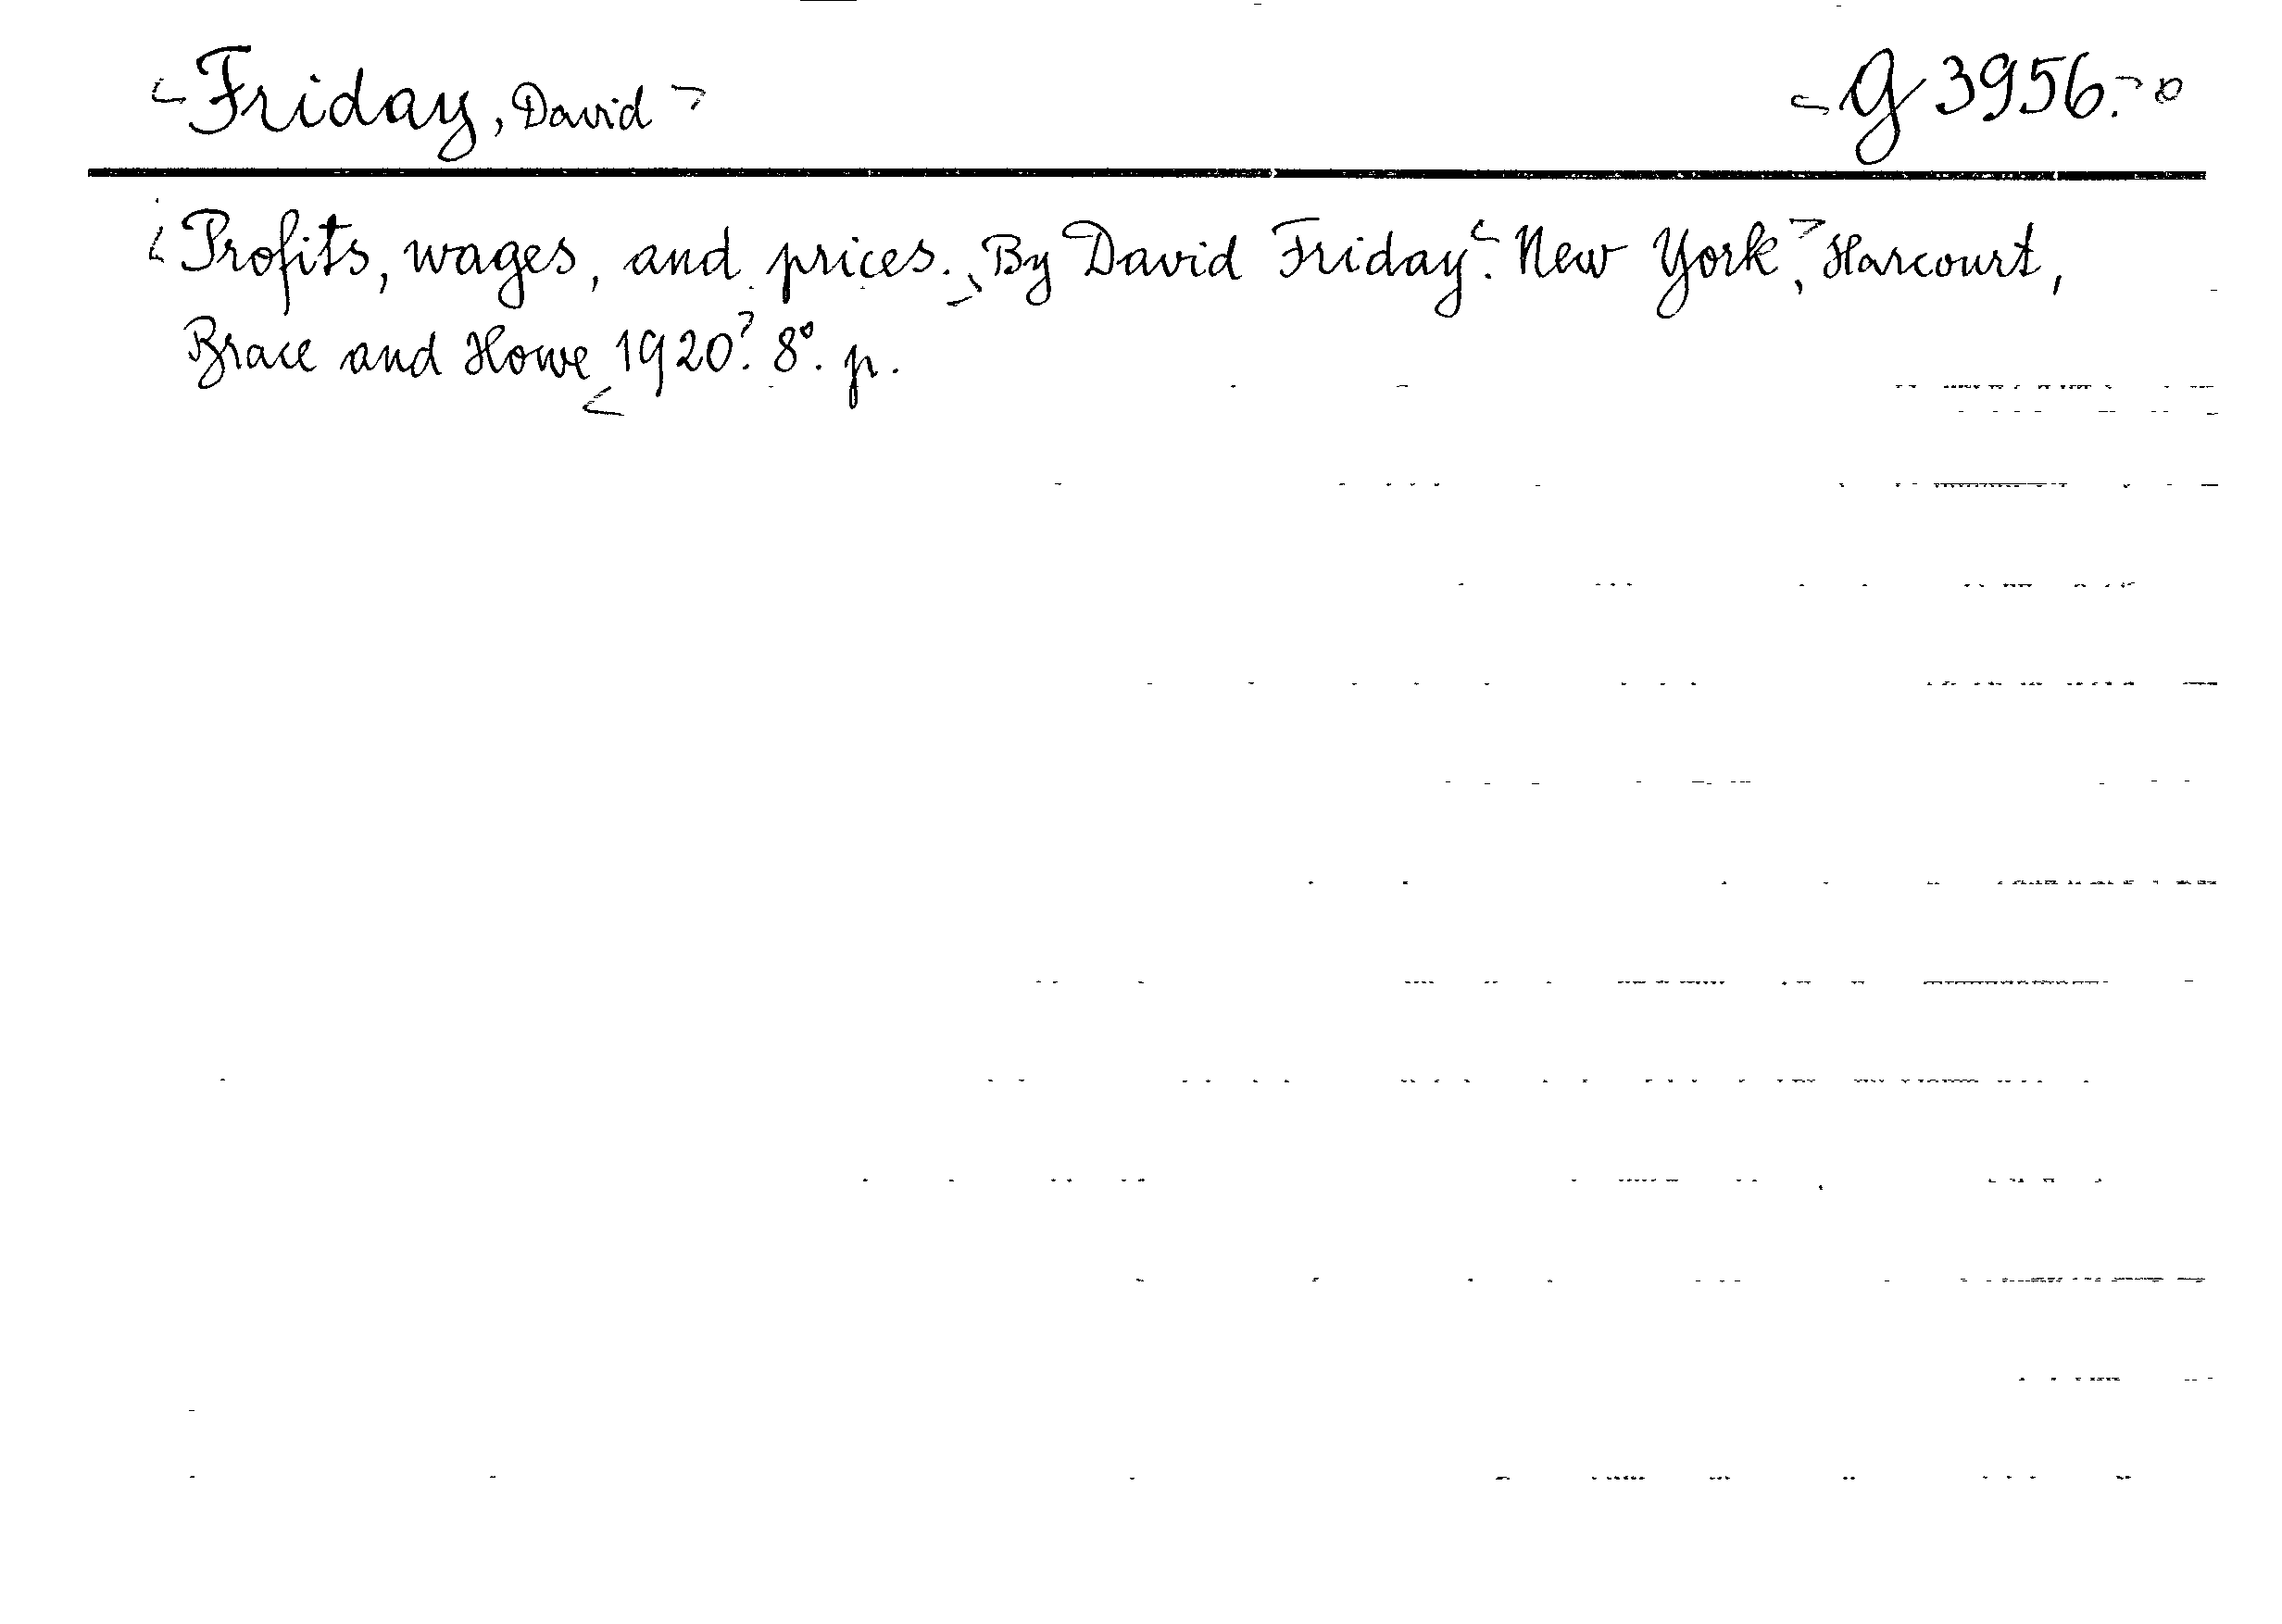 Friday, David G 3956.
Profits, wages, and prices. By David Friday. New York, Harcourt,
Brace and Howe 1920. 8°. p.